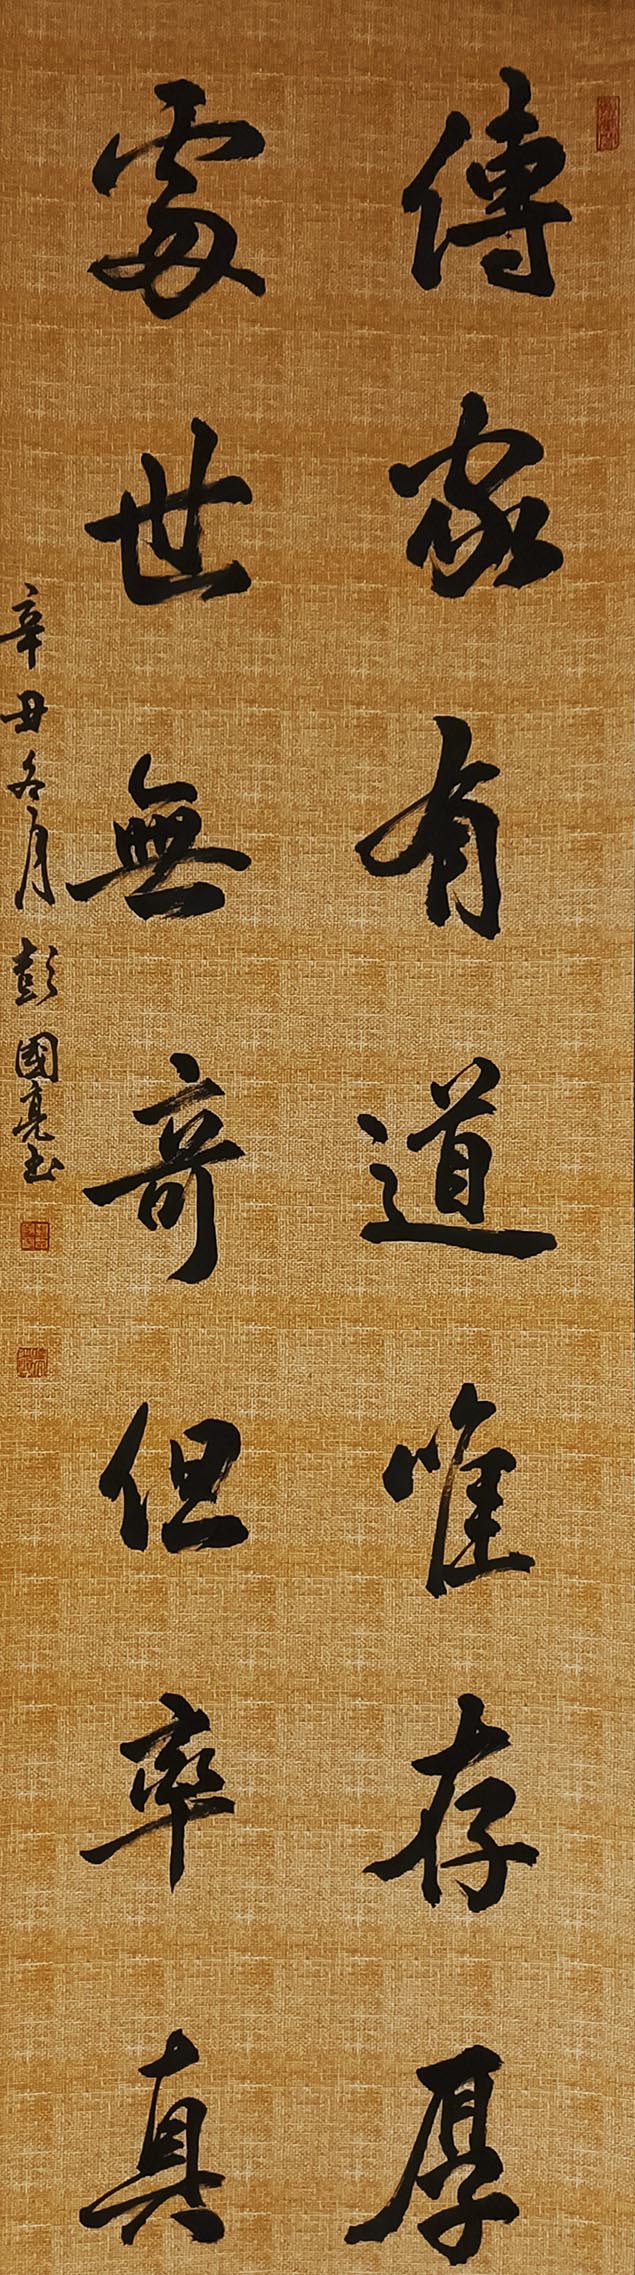 傳家有道唯存厚
處世無奇但率真
辛丑冬月彭國亮書